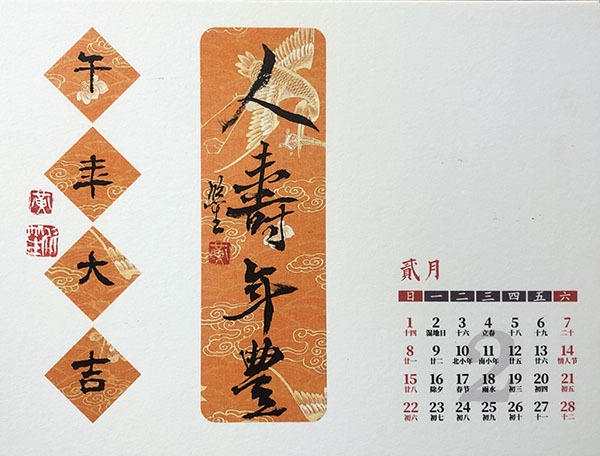 午年大吉
人壽年豐
黃
黃
貳月
2
日 一 二 三 四 五 六
1 2 3 4 5 6 7
十四 湿地日 十六 立春 十八 十九 二十
8 9 10 11 12 13 14
廿一 廿二 北小年 南小年 廿五 廿六 情人节
15 16 17 18 19 20 21
廿八 除夕 春节 雨水 初三 初四 初五
22 23 24 25 26 27 28
初六 初七 初八 初九 初十 十一 十二